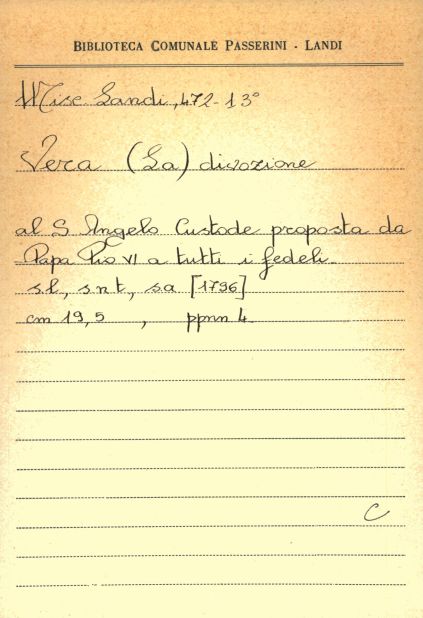 BIBLIOTECA COMUNALE PASSERINI - LANDI
Misc Landi, 472-13°
Vera (La) divozione
al S Angelo Custode proposta da
Papa Pio VI a tutti i fedeli.
sl, snt, sa [1796]
cm 19,5 , ppnn 4
C